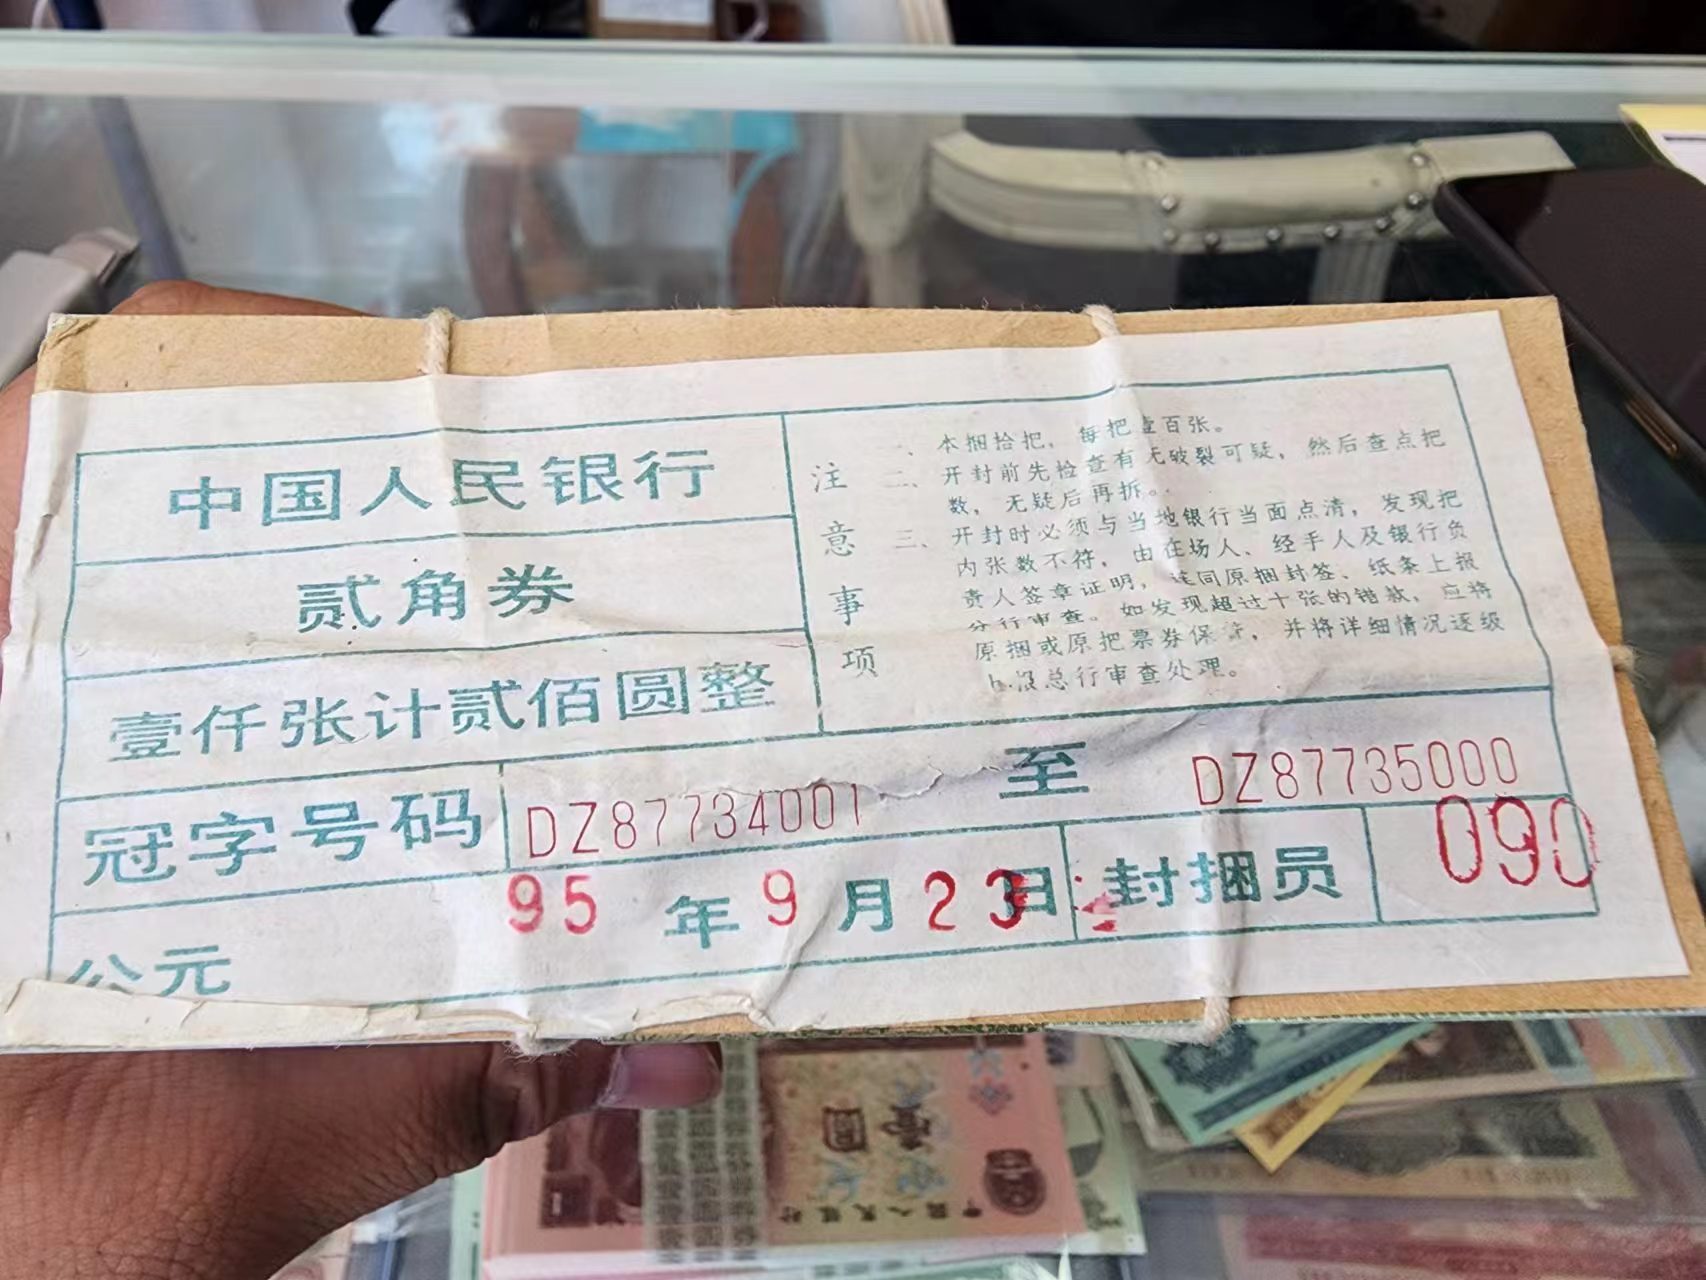 中国人民银行
贰角券
壹仟张计贰佰圆整
注意事项
一、本捆拾把，每把壹百张。
二、开封前先检查有无破裂可疑，然后查点把
数，无疑后再拆。
三、开封时必须与当地银行当面点清，发现把
内张数不符，由在场人、经手人及银行负
责人签章证明，连同原捆封签、纸条上报
分行审查。如发现超过十张的错款，应将
原捆或原把票券保管，并将详细情况逐级
上报总行审查处理。
冠字号码 DZ87734001 至 DZ87735000
公元 95 年 9 月 23 日 封捆员 090
壹圆
中国人民银行